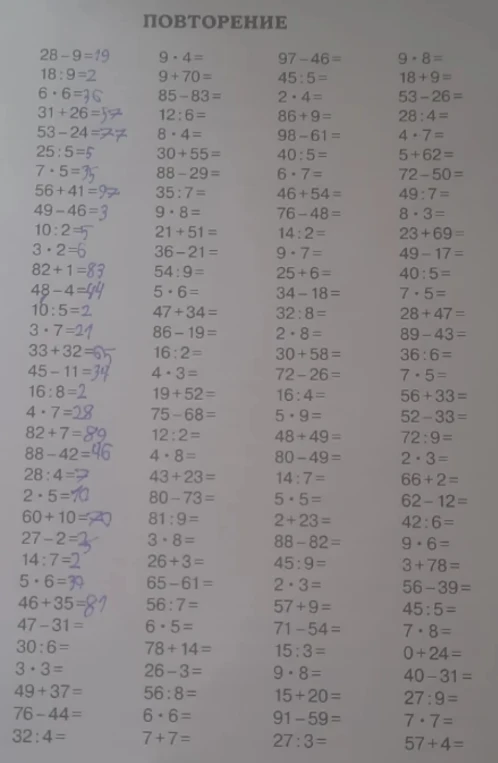 ПОВТОРЕНИЕ
28-9=19 9·4= 97-46= 9·8=
18:9=2 9+70= 45:5= 18+9=
6·6=36 85-83= 2·4= 53-26=
31+26=57 12:6= 86+9= 28:4=
53-24=77 8·4= 98-61= 4·7=
25:5=5 30+55= 40:5= 5+62=
7·5=35 88-29= 6·7= 72-50=
56+41=97 35:7= 46+54= 49:7=
49-46=3 9·8= 76-48= 8·3=
10:2=5 21+51= 14:2= 23+69=
3·2=6 36-21= 9·7= 49-17=
82+1=83 54:9= 25+6= 40:5=
48-4=44 5·6= 34-18= 7·5=
10:5=2 47+34= 32:8= 28+47=
3·7=21 86-19= 2·8= 89-43=
33+32=65 16:2= 30+58= 36:6=
45-11=34 4·3= 72-26= 7·5=
16:8=2 19+52= 16:4= 56+33=
4·7=28 75-68= 5·9= 52-33=
82+7=89 12:2= 48+49= 72:9=
88-42=46 4·8= 80-49= 2·3=
28:4=7 43+23= 14:7= 66+2=
2·5=10 80-73= 5·5= 62-12=
60+10=70 81:9= 2+23= 42:6=
27-2=25 3·8= 88-82= 9·6=
14:7=2 26+3= 45:9= 3+78=
5·6= 65-61= 2·3= 56-39=
46+35=81 56:7= 57+9= 45:5=
47-31= 6·5= 71-54= 7·8=
30:6= 78+14= 15:3= 0+24=
3·3= 26-3= 9·8= 40-31=
49+37= 56:8= 15+20= 27:9=
76-44= 6·6= 91-59= 7·7=
32:4= 7+7= 27:3= 57+4=